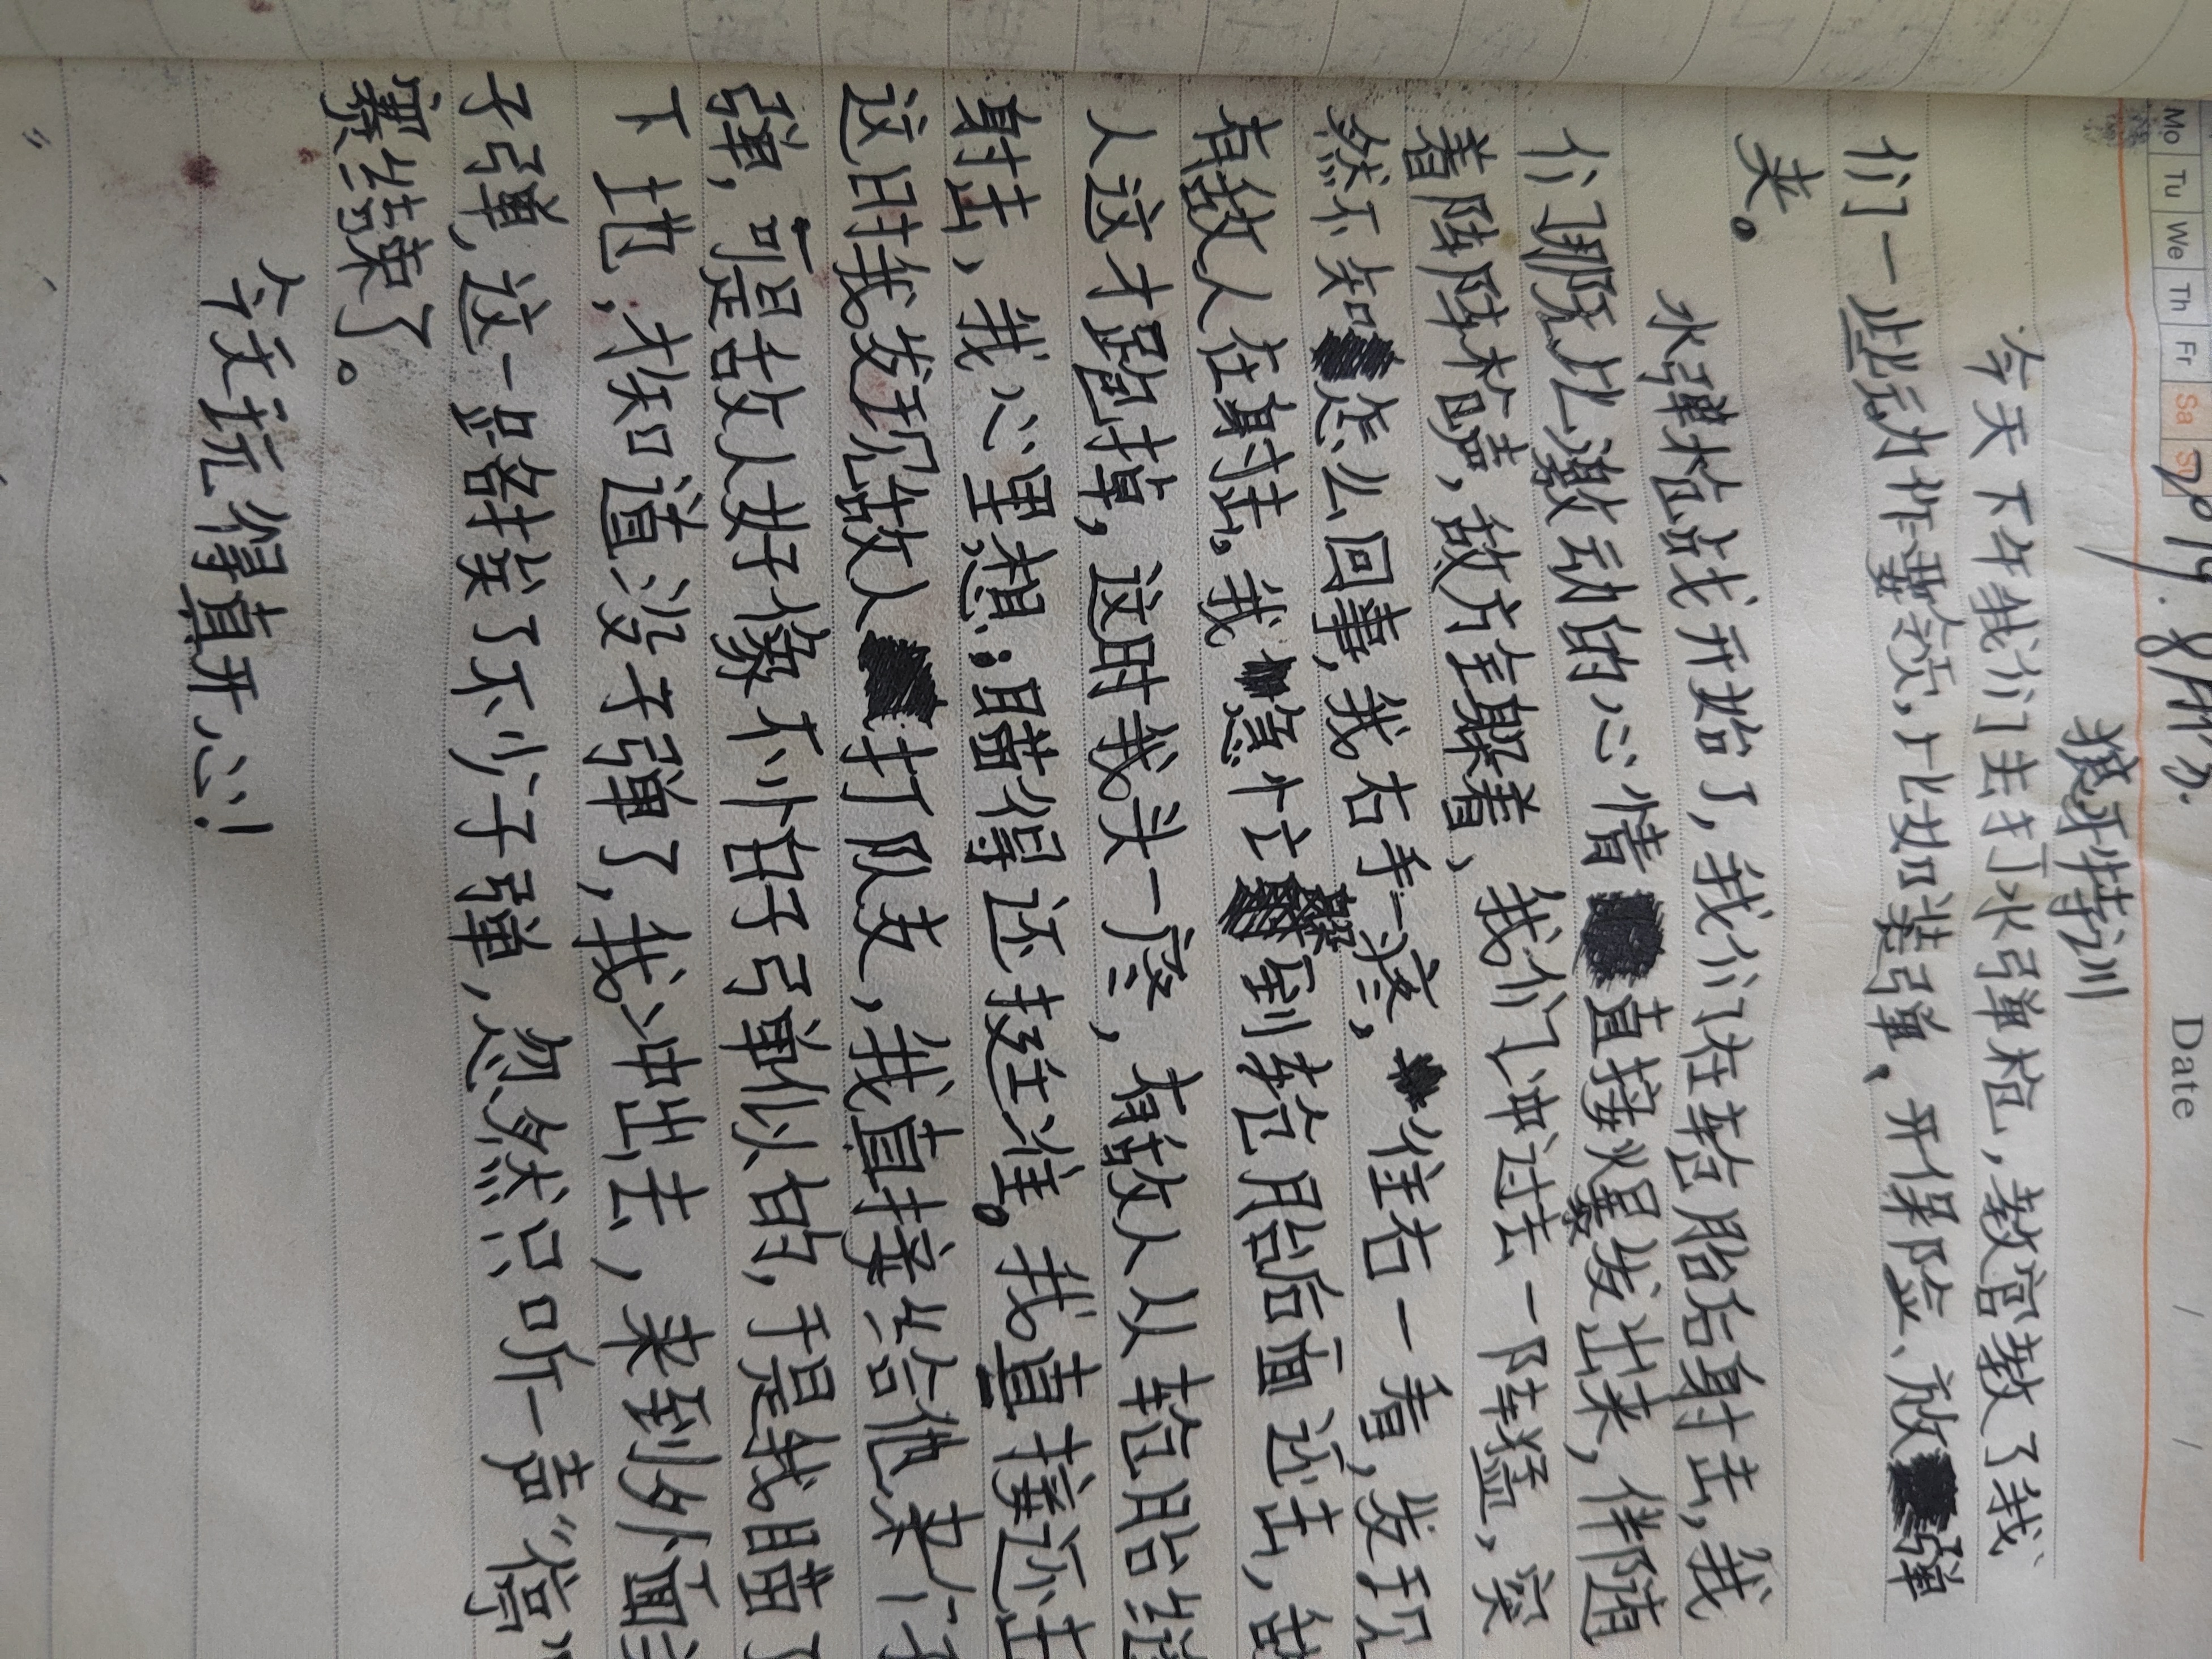 Mo Tu We Th Fr Sa Su Date / /
狼牙特训
今天下午我们去打水弹枪，教官教了我
们一些动作要领，比如装弹、开保险、放弹
夹。
水弹枪战开始了，我们在轮胎后射击，我
们那无比激动的心情直接爆发出来，伴随
着阵阵枪声，敌方全躲着，我们冲过去一阵猛，突
然不知怎么回事，我右手一疼，往右一看，发现
有敌人在射击，我急忙躲到轮胎后面还击，敌
人这才跑掉，这时我头一疼，有敌人从轮胎缝
射击，我心里想：瞄得还挺准。我直接还击
这时我发现敌人打队友，我直接给他来个子
弹，可是敌人好像不怕子弹似的，于是我瞄了
下地，才知道没子弹了，我冲出去，来到外面
子弹，这一路挨了不少子弹，忽然只听一声“停”
赛结束了。
今天玩得真开心！